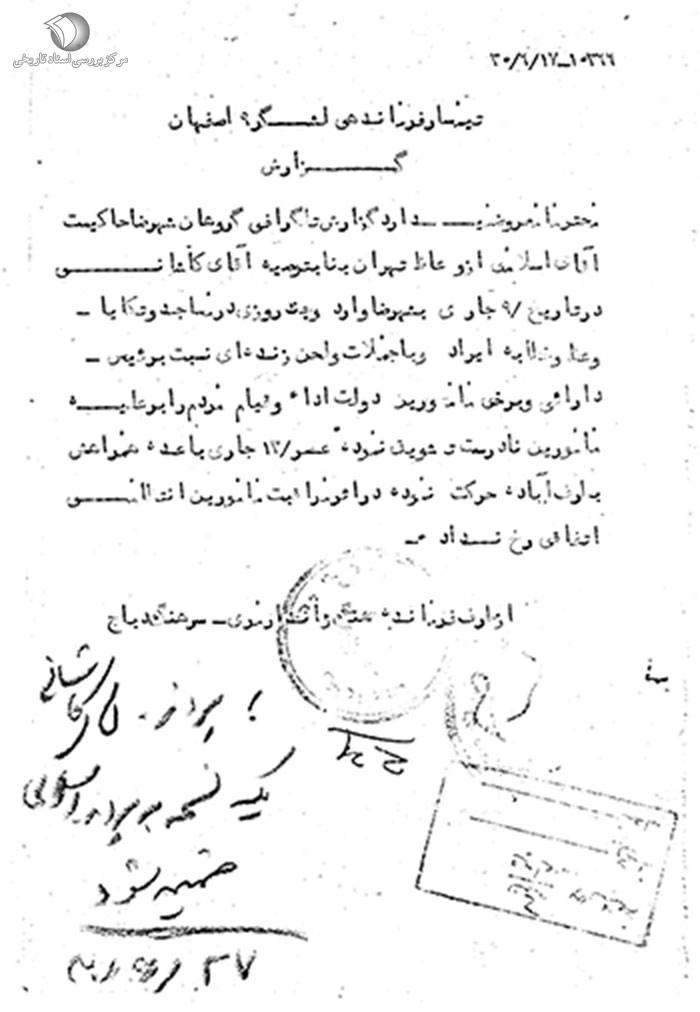 مرکز بررسی اسناد تاریخی
۳۰/۶/۱۷-۱۰۳۶۶
تیمسار فرماندهی لشگر ۹ اصفهان
گزارش
محترما معروضمیدارد گزارش تلگرافی گروهان شهرضا حاکیست
آقای اسلامی از وعاظ تهران بنا بتوصیه آقای کاشانی
در تاریخ /۹ جاری بشهرضا وارد و چند روزی در مساجد و تکایا -
وعظ و خطابه ایراد و با جملات و لحن زننده‌ای نسبت برئیس -
دارائی و برخی مامورین دولت اداء و قیام مردم را بر علیه
مامورین نادرست تشویق نموده عصر /۱۲ جاری با عده همراهش
بطرف آباده حرکت نموده در اثر مراقبت مامورین انتظامی
اتفاقی رخ نداد م-
از طرف فرمانده هنگ ژاندارمری - سرهنگ دیباج
پرونده کاشانی
یک نسخه به پرونده اسلامی
ضمیمه شود
۲۷